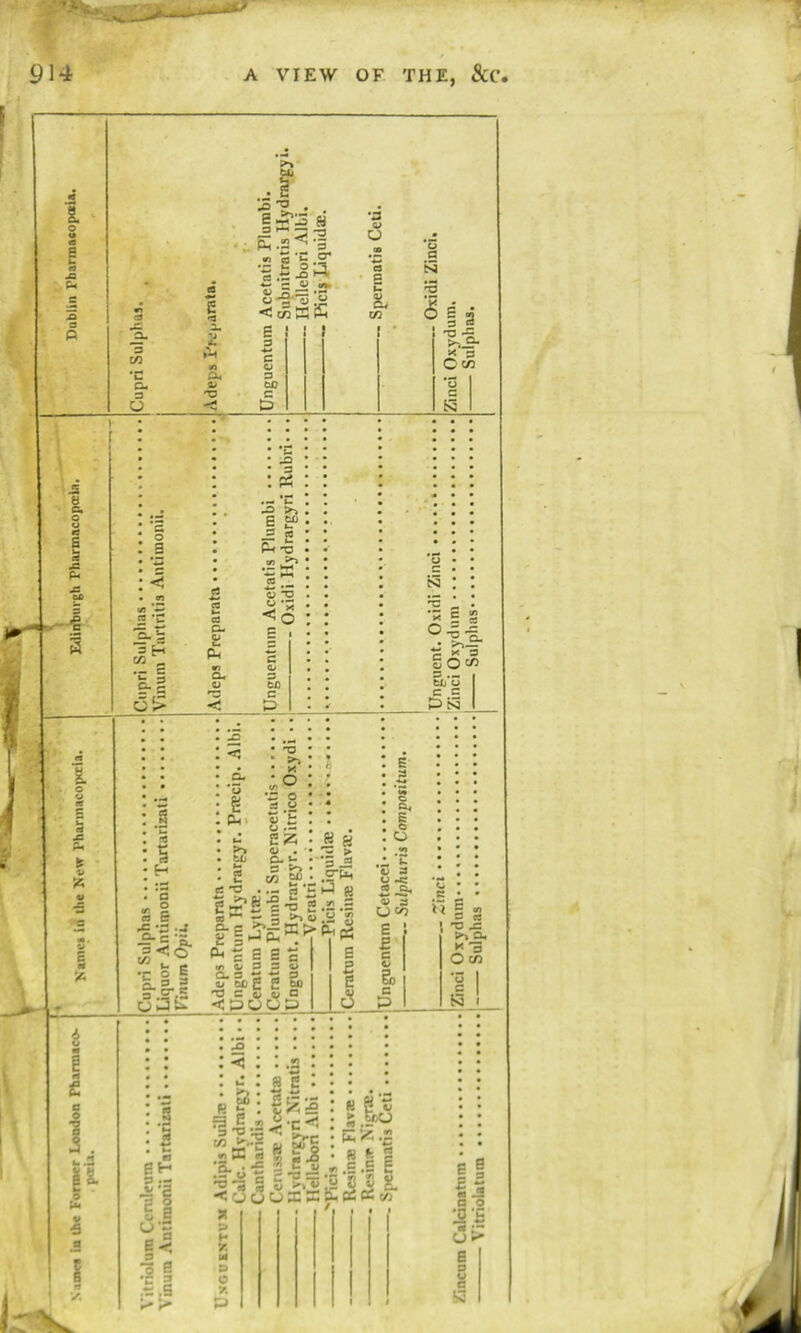 914 A VIEW OF THE, &c.
Names in the Former London Pharmacopœia.
Vitriolum Cœruleum
Vinum Antimonii Tartarizati
UNGUENTUM Adipis Suillæ
—— Calc. Hydrargyr. Albi
—— Cantharidis
—— Cerussæ Acetatæ
—— Hydrargyri Nitratis
—— Hellebori Albi
—— Picis
—— Resinæ Flavæ
—— Resinæ Nigræ.
—— Spermatis Ceti
Zincum Calcinatum
—— Vitriolatum
Names in the New Pharmacopœia.
Cupri Sulphas
Liquor Antimonii Tartarizati
Vinum Opii.
Adeps Preparata
Unguentum Hydrargyr. Præcip. Albi.
Ceratum Lyttæ.
Ceratum Plumbi Superacetatis
Unguent. Hydrargyr. Nitrico Oxydi
—— Veratri
—— Picis Liquidæ
Ceratum Resinæ Flavæ.
Unguentum Cetacei
—— Sulphuris Compositum.
—— Zinci
Zinci Oxydum
—— Sulphas
Edinburgh Pharmacopœia.
Cupri Sulphas
Vinum Tartritis Antimonii.
Adeps Preparata
Unguentum Acetatis Plumbi
—— Oxidi Hydrargyri Rubri
Unguent. Oxidi Zinci
Zinci Oxydum
—— Sulphas
Dublin Pharmacopœia.
Cupri Sulphas.
Adeps Preparata.
Unguentum Acetatis Plumbi.
—— Subnitratis Hydrargyi.
—— Hellebori Albi.
—— Picis Liquidæ.
—— Spermatis Ceti.
—— Oxidi Zinci.
Zinci Oxydum.
—— Sulphas.